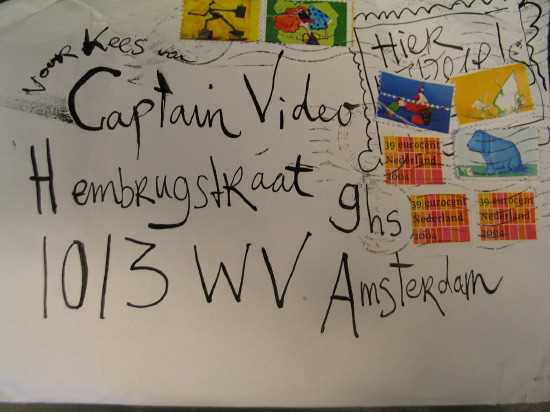 Voor Kees van
Captain Video
Hembrugstraat 9hs
1013 WV Amsterdam
Hier
39 eurocent
Nederland
2004
39 eurocent
Nederland
2004
39 eurocent
Nederland
2004